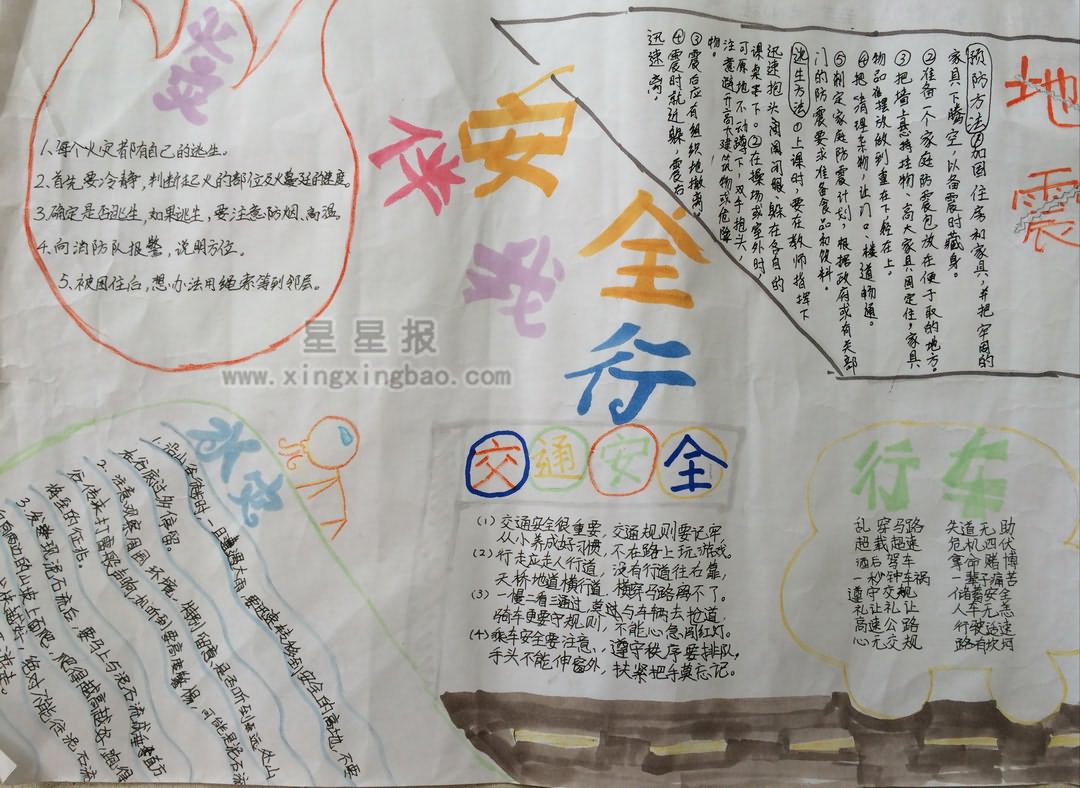 火灾
1、每个火灾都有自己的逃生。
2、首先要冷静，判断起火的部位及火蔓延的速度。
3、确定是否逃生，如果逃生，要注意防烟、高温。
4、向消防队报警，说明方位。
5、被困住后，想办法用绳索等到邻层。
安全
伴我
行
地震
预防方法①加固住房和家具，并把牢固的
家具下腾空，以备震时藏身。
②准备一个家庭防震包放在便于取的地方。
③把墙上悬特挂物，高大家具固定住，家具
物品在摆放做到重在下轻在上。
④把清理杂物，让门口、楼道畅通。
⑤制定家庭防震计划，根据政府或有关部
门的防震要求准备食品和饮料。
逃生方法①上课时，要在教师指挥下
迅速抱头闭眼、躲在各自的
课桌下。②在操场或室外时，
可原地不动蹲下，双手抱头，
注意避开高大建筑物或危险
物。
③震后应有组织地撤离
④震时就近躲，震后
迅速离，
星星报
www.xingxingbao.com
1、沿山谷
在谷底过多停留。
2、注意观察周围环境，
将至的征兆。
3、发现泥石流后，要马上与泥石流成垂直方
交通安全
(1)交通安全很重要，交通规则要记牢，
从小养成好习惯，不在路上玩游戏。
(2)行走应走人行道，没有行道往右靠，
天桥地道横行道，横穿马路闯不了。
(3)一慢二看三通过，莫与车辆去抢道，
骑车更要守规则，不能心急闯红灯。
(4)乘车安全要注意，遵守秩序要排队，
手头不能伸窗外，扶紧把手莫忘记。
行车
乱穿马路 失道无助
超载超速 危机四伏
酒后驾车 夺命赌博
一秒钟车祸 一辈子痛苦
遵守交规 储蓄安全
礼让礼让 人车无恙
高速公路 行驶适速
心无交规 路有坎坷